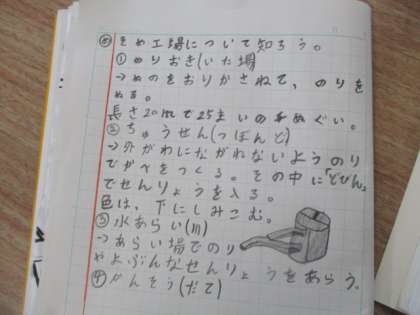 ㋱そめ工場について知ろう。
①のりおき(いた場
→ぬのをおりかさねて、のりを
ぬる。
長さ20mで25まいの手ぬぐい。
②ちゅうせん(つぼんど)
→外がわにながれないようのり
でかべをつくる。その中に「どびん」
でせんりょうを入る。
色は、下にしみこむ。
③水あらい(川)
→あらい場でのり
やよぶんなせんりょうをあらう。
④かんそう(だて)